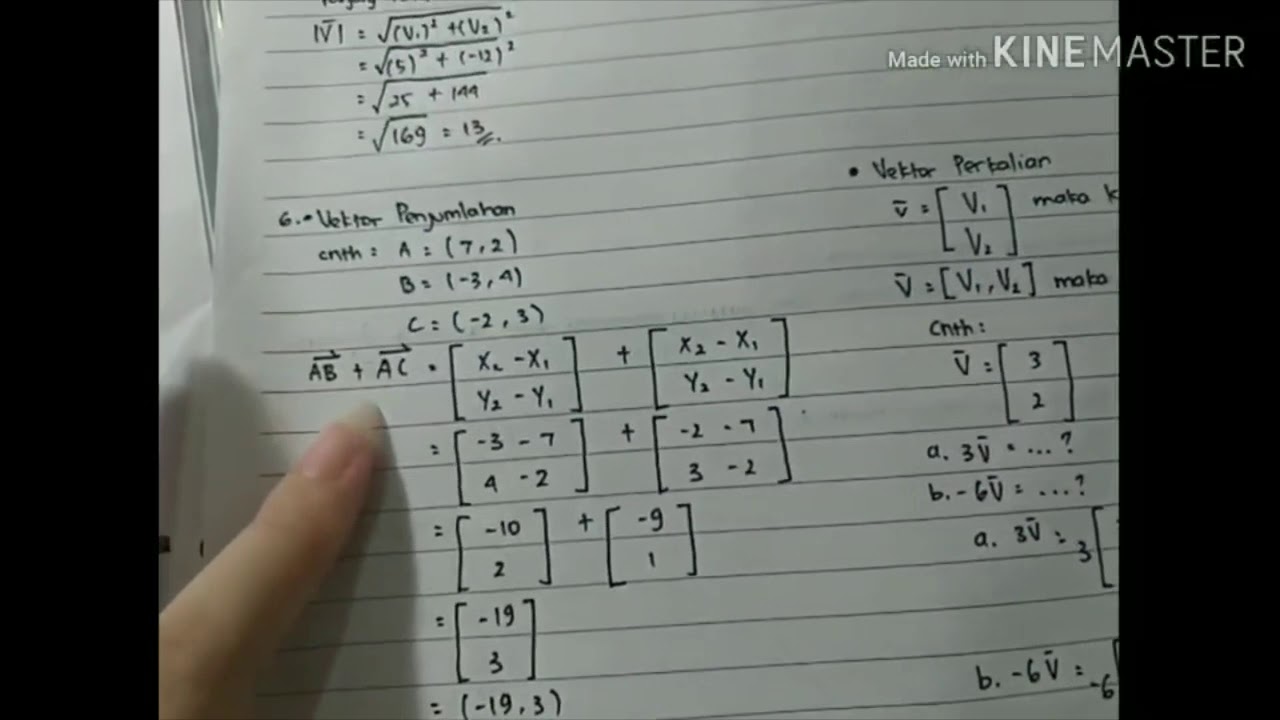 Made with KINEMASTER
|V̄| = √(V₁)² + (V₂)²
= √(5)² + (-12)²
= √25 + 144
= √169 = 13
6. • Vektor Penjumlahan
cnth = A = (7,2)
B = (-3,4)
C = (-2,3)
AB + AC = [X₂ - X₁ / Y₂ - Y₁] + [X₂ - X₁ / Y₂ - Y₁]
= [-3 - 7 / 4 - 2] + [-2 - 7 / 3 - 2]
= [-10 / 2] + [-9 / 1]
= [-19 / 3]
= (-19, 3)
• Vektor Perkalian
v̄ = [V₁ / V₂] maka k
V̄ = [V₁, V₂] maka
Cnth:
V̄ = [3 / 2]
a. 3V̄ = ...?
b. -6V̄ = ...?
a. 3V̄ = 3[
b. -6V̄ = -6[